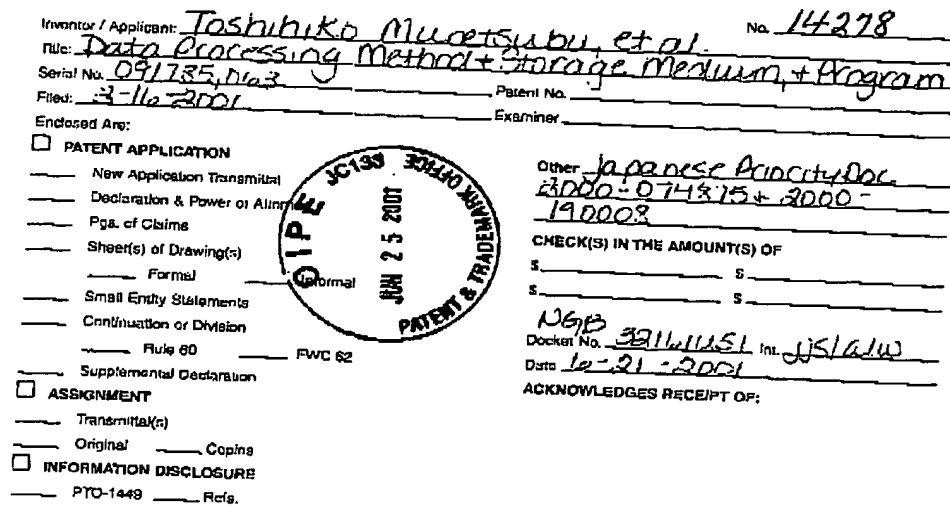 Inventor / Applicant: Toshihiko Muretsubu, et al. No. 14278
Title: Data Processing Method + Storage Medium, + Program
Serial No. 09/785, Patent No.
Filed: 3-16-2001 Examiner
Enclosed Are:
PATENT APPLICATION
New Application Transmittal
Declaration & Power of
Pgs. of Claims
Sheet(s) of Drawing(s)
Formal Informal
Small Entity Statements
Continuation or Division
Rule 60 FWC 62
Supplemental Declaration
ASSIGNMENT
Transmittal(s)
Original Copies
INFORMATION DISCLOSURE
PTO-1449 Refs.
OIPE JC133
JUN 25 2001
PATENT & TRADEMARK OFFICE
Other Japanese Priority Doc.
2000-074875 + 2000-
190008
CHECK(S) IN THE AMOUNT(S) OF
$ $
$ $
NGB
Docket No. Int. jjs/alw
Date 6-21-2001
ACKNOWLEDGES RECEIPT OF: